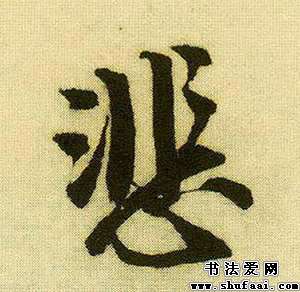 悲
书法爱网
www.shufaai.com